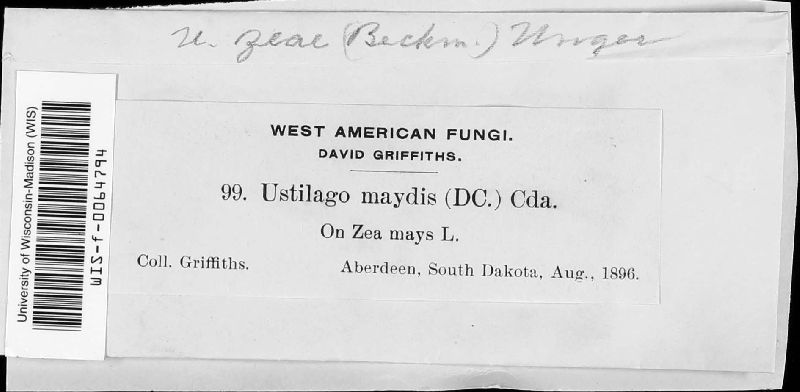 U. zeae (Beckm.) Unger
University of Wisconsin-Madison (WIS)
WIS-f-0064794
WEST AMERICAN FUNGI.
DAVID GRIFFITHS.
99. Ustilago maydis (DC.) Cda.
On Zea mays L.
Coll. Griffiths. Aberdeen, South Dakota, Aug., 1896.